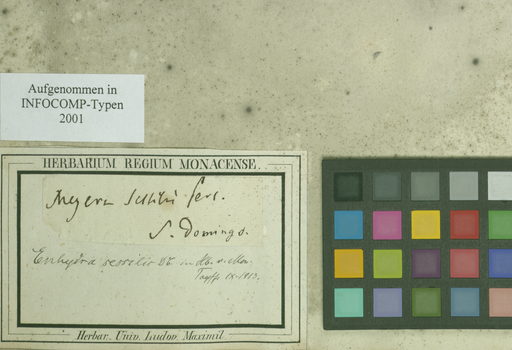 Aufgenommen in
INFOCOMP-Typen
2001
HERBARIUM REGIUM MONACENSE.
Meyera sessilis
S. Domingo.
Enhydra sessilis DC. in
IX. 1913.
Herbar. Univ. Ludov. Maximil.